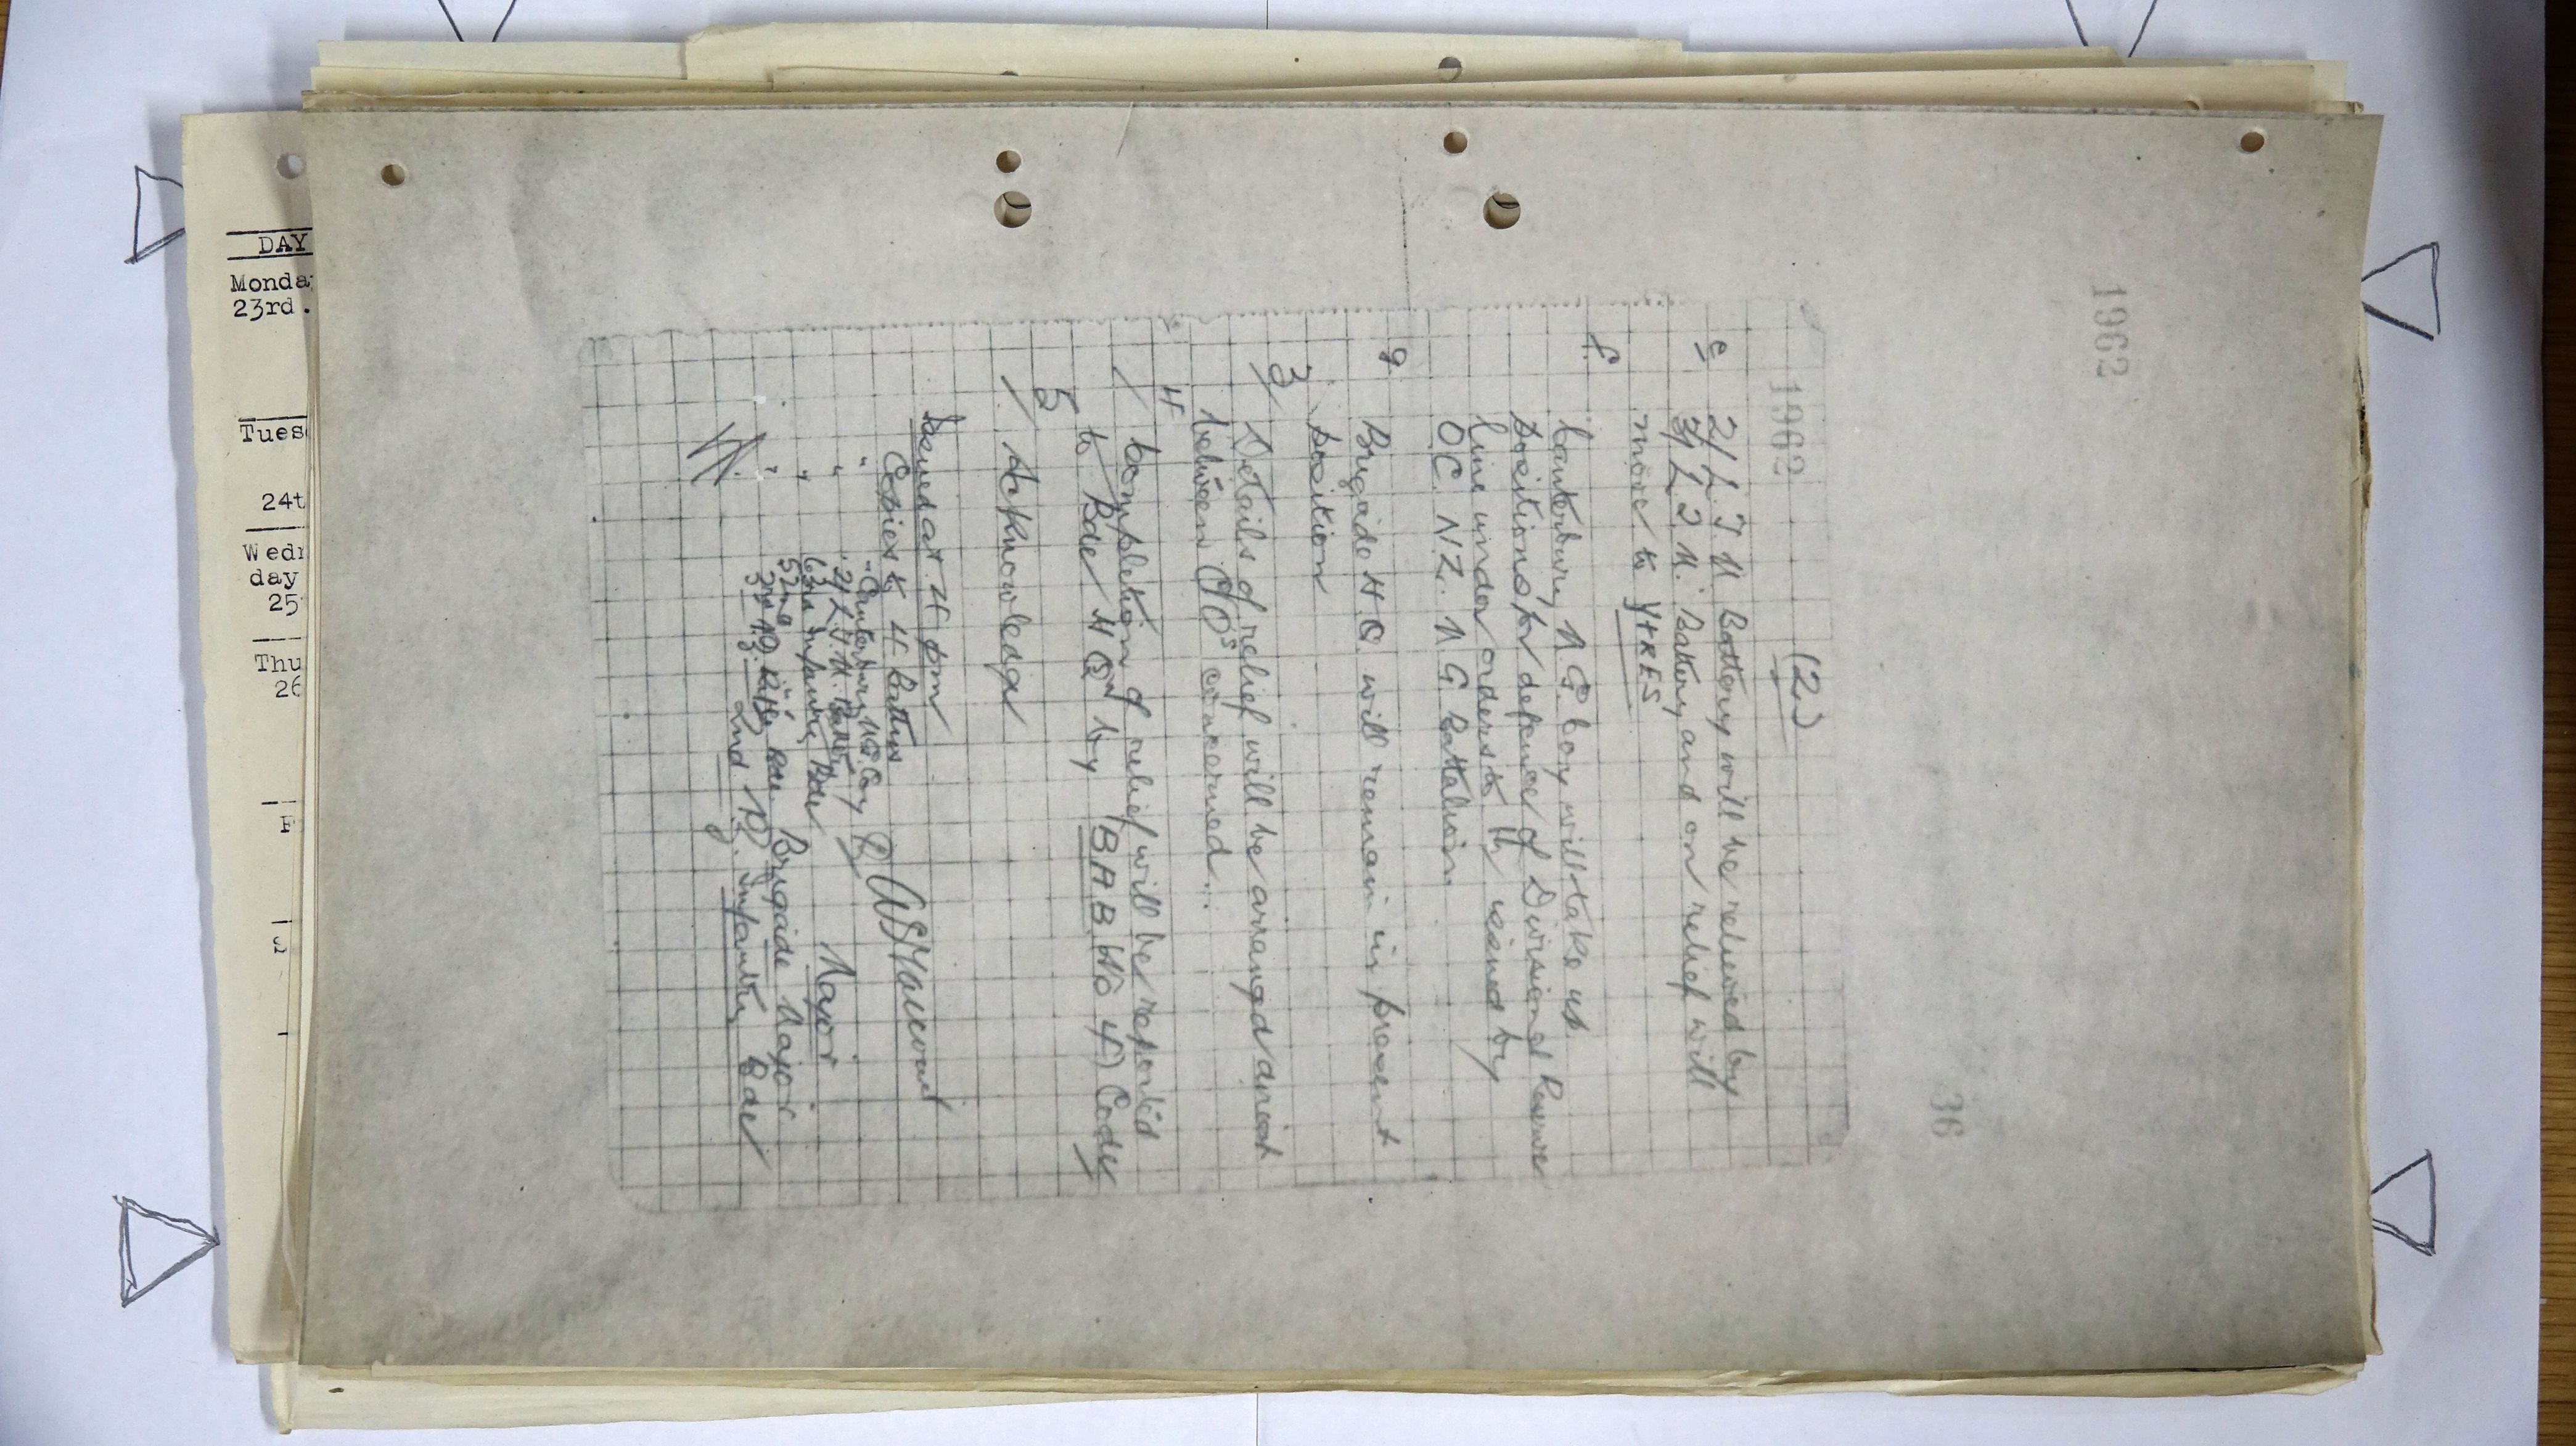 1962
36
1962
(2.)
e 2/L.T.M Battery will be relieved by
3/L.T.M. Battery and on relief will
move to YPRES
f. Canterbury M.G. Coy will take up
positions for defence of Divisional Reserve
line under orders to be issued by
OC. N.Z. M.G. Battalion.
g Brigade H.Q. will remain in present
position
3/ Details of relief will be arranged direct
between COs concerned.
4/ Completion of relief will be reported
to Bde HQ by BAB Code
5/ Acknowledge
Issued at 4 pm
Copies to 4 Battns
" Canterbury M.G. Coy
" 2/L.T.M. Battery
" Infantry Bde
" Rifle Bde
Major
Brigade Major
2nd N.Z. Infantry Bde
DAY
Monda
23rd.
Tues
24t
Wedn
day
25
Thu
26
F